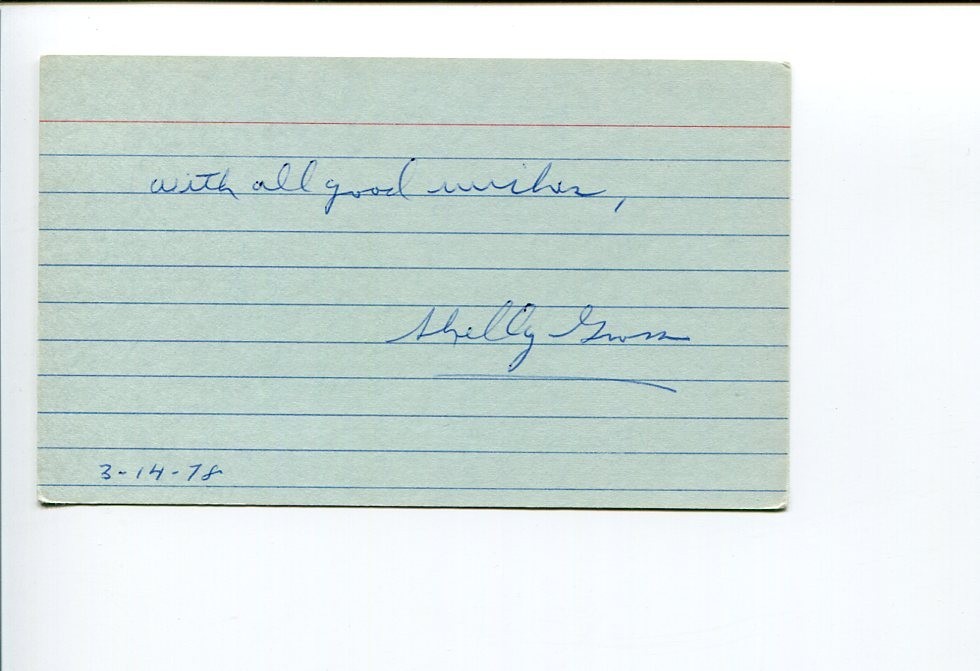 with all good wishes,
Shelly Gross
3-14-78